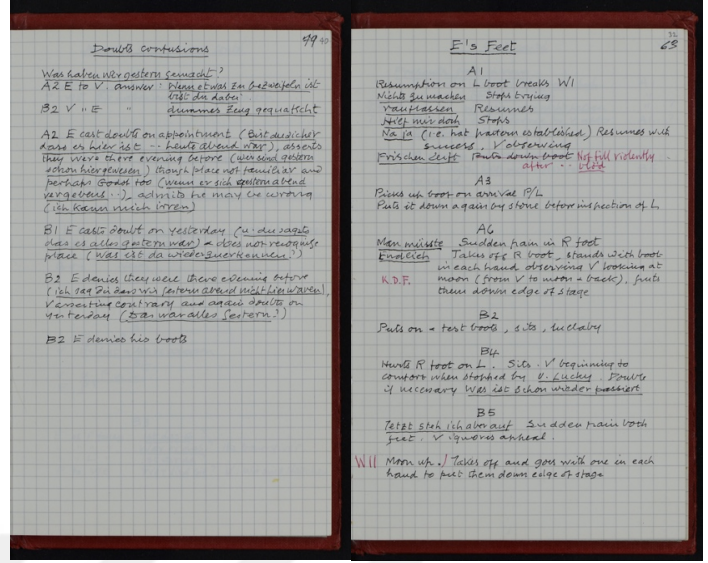 Doubts confusions
49
Was haben wir gestern gemacht?
A2 E to V. answer: Wenn etwas zu bezweifeln ist
bist du dabei
B2 V " E " dummes Zeug gequatscht
A2 E casts doubt on appointment (Bist du sicher
dass es hier ist ... heute abend war), asserts
they were there evening before (wir sind gestern
schon hier gewesen) though place not familiar and
perhaps Godot too (wenn er sich gestern abend
vergebens ..), admits he may be wrong
(ich kann mich irren)
B1 E casts doubt on yesterday (u. du sagst
das es alles gestern war) & does not recognise
place (was ist da wiederzuerkennen?)
B2 E denies they were there evening before
(ich sag dir dass wir gestern abend nicht hier waren),
V asserting contrary and again doubts on
yesterday (Das war alles gestern?)
B2 E denies his boots
E's Feet
63
A1
Resumption on L boot breaks W1
Nichts zu machen Stops trying
Resumes
Hilf mir doch Stops
Na ja (i.e. hat pattern established) Resumes with
success, V observing
Frischen Luft Puts down boot Not till violently
after
A3
Picks up boot on arrival P/L
Puts it down again by stone before inspection of L
A6
Man müsste Sudden pain in R foot
Endlich Takes off R boot, stands with boot
in each hand observing V looking at
K.D.F. moon (from V to moon & back), puts
them down edge of stage
B2
Puts on & test boots, sits, lullaby
B4
Hurts R foot on L. Sits. V beginning to
comfort when stopped by v. Lucky. Double
if necessary Was ist schon wieder passiert
B5
Jetzt steh ich aber auf Sudden pain both
feet. V ignores appeal.
WII Moon up. / Takes off and goes with one in each
hand to put them down edge of stage